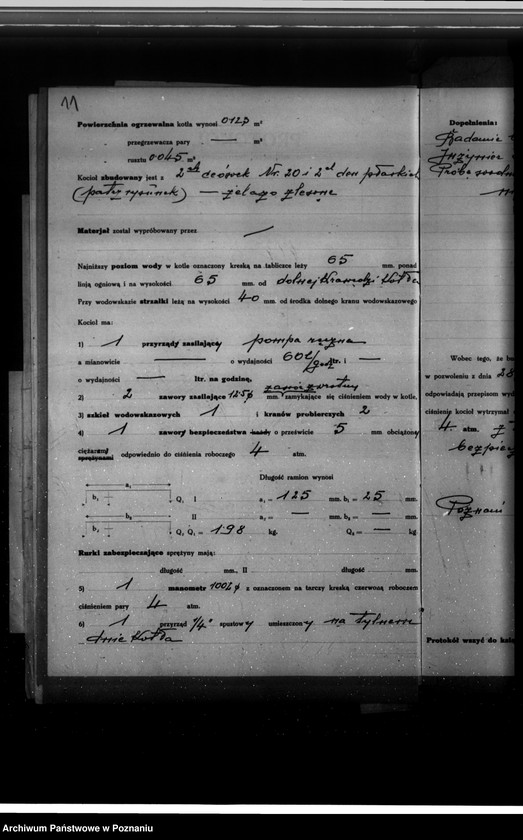 11
Powierzchnia ogrzewalna kotła wynosi 0127 m²
„ przegrzewacza pary — m²
„ rusztu 0.045 m²
Kocioł zbudowany jest z 2 Nr. 20 i 2
(patrz rysunek) — żelazo zlewne
Materjał został wypróbowany przez —
Najniższy poziom wody w kotle oznaczony kreską na tabliczce leży 65 mm. ponad
linją ogniową i na wysokości 65 mm. od dolnej krawędzi kotła
Przy wodowskazie strzałki leżą na wysokości 40 mm. od środka dolnego kranu wodowskazowego
Kocioł ma:
1) 1 przyrządy zasilający pompa ręczna
a mianowicie — o wydajności 60 l/godz ltr. i —
o wydajności — ltr. na godzinę,
zawór zwrotny
2) 2 zawory zasilające mm. zamykające się ciśnieniem wody w kotle,
3) szkieł wodowskazowych 1 i kranów probierczych 2
4) 1 zawory bezpieczeństwa o prześwicie 5 mm obciążony
ciężarami sprężynami odpowiednio do ciśnienia roboczego 4 atm.
Długość ramion wynosi
a₁ b₁ Q₁ I a₁ = 125 mm. b₁ = 25 mm.
a₂ b₂ II a₂ = — mm. b₂ = — mm.
Q₁ Q₁ = 1.98 kg. Q₂ = — kg.
Rurki zabezpieczające sprężyny mają:
długość mm., II długość mm.
5) 1 manometr 100 z oznaczonem na tarczy kreską czerwoną roboczem
ciśnieniem pary 4 atm.
6) 1 przyrząd 1/4" spustowy umieszczony na tylnem
dnie kotła
Dopełnienia:
Badanie
Inżynier
Próbę
Wobec tego, że
w pozwoleniu z dnia 28
odpowiadają przepisom
ciśnienie kocioł wytrzymał
4 atm.
Poznań
Protokół wszyć do
Archiwum Państwowe w Poznaniu